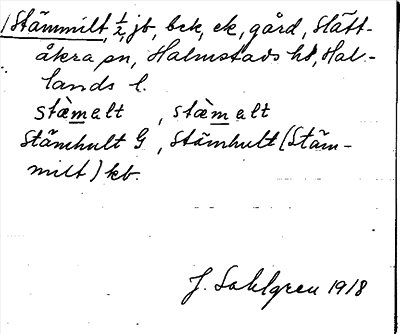 /Stämmilt, ½, jb, bek, ek, gård, Slätt-
åkra sn, Halmstads hd, Hal-
lands l.
stæ̀malt, stæ̀malt
Stämhult G, Stämhult (Stäm-
milt) kb.
J. Sahlgren 1918